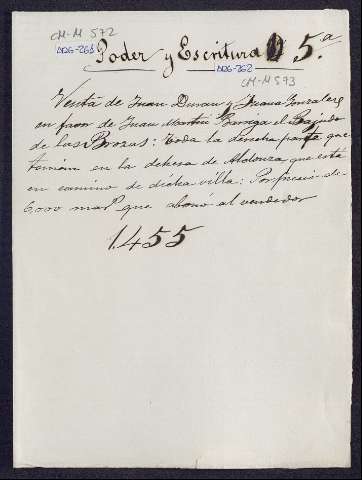 CM-M 572
ADG-261
Poder y Escritura 5.ª
ADG-262
CM-M 573
Venta de Juan Duran y Juana Gonzalez
en favor de Juan Martin el
de las Brozas: Toda la derecha parte que
tenian en la dehesa de que está
en camino de dicha villa: Por precio de
6000 mar.s que abonó al vendedor
1455